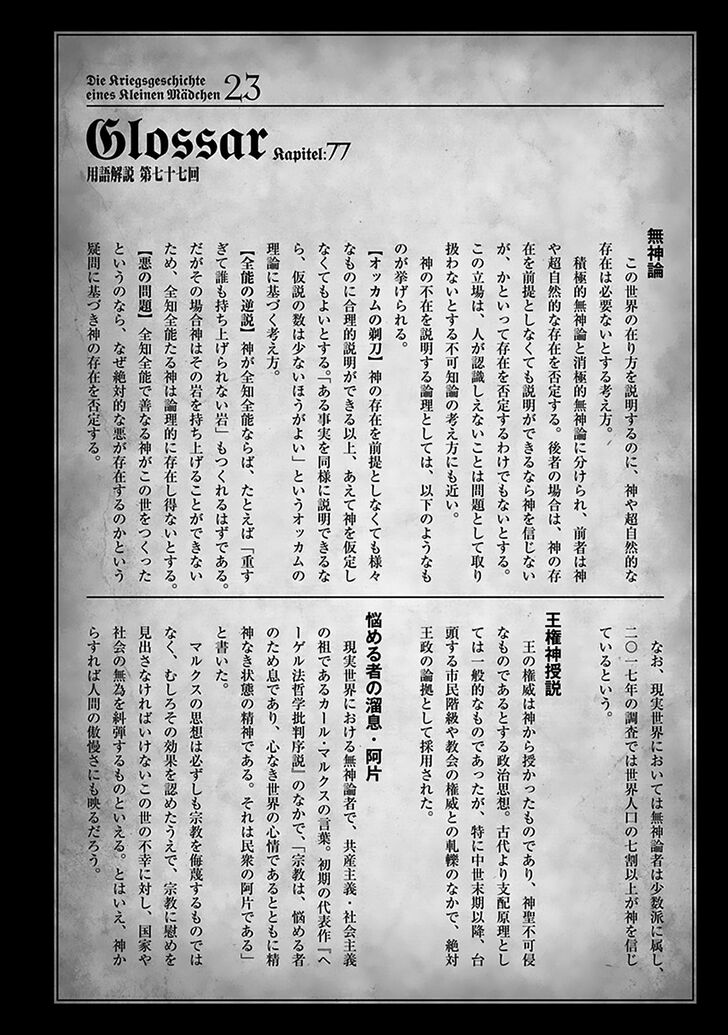 Die Kriegsgeschichte
eines Kleinen Mädchen 23
Glossar Kapitel:77
用語解説 第七十七回
無神論
この世界の在り方を説明するのに、神や超自然的な
存在は必要ないとする考え方。
積極的無神論と消極的無神論に分けられ、前者は神
や超自然的な存在を否定する。後者の場合は、神の存
在を前提としなくても説明ができるなら神を信じない
が、かといって存在を否定するわけでもないとする。
この立場は、人が認識しえないことは問題として取り
扱わないとする不可知論の考え方にも近い。
神の不在を説明する論理としては、以下のようなも
のが挙げられる。
【オッカムの剃刀】神の存在を前提としなくても様々
なものに合理的説明ができる以上、あえて神を仮定し
なくてもよいとする。「ある事実を同様に説明できるな
ら、仮説の数は少ないほうがよい」というオッカムの
理論に基づく考え方。
【全能の逆説】神が全知全能ならば、たとえば「重す
ぎて誰も持ち上げられない岩」もつくれるはずである。
だがその場合神はその岩を持ち上げることができない
ため、全知全能たる神は論理的に存在し得ないとする。
【悪の問題】全知全能で善なる神がこの世をつくった
というのなら、なぜ絶対的な悪が存在するのかという
疑問に基づき神の存在を否定する。
なお、現実世界においては無神論者は少数派に属し、
二〇一七年の調査では世界人口の七割以上が神を信じ
ているという。
王権神授説
王の権威は神から授かったものであり、神聖不可侵
なものであるとする政治思想。古代より支配原理とし
ては一般的なものであったが、特に中世末期以降、台
頭する市民階級や教会の権威との軋轢のなかで、絶対
王政の論拠として採用された。
悩める者の溜息・阿片
現実世界における無神論者で、共産主義・社会主義
の祖であるカール・マルクスの言葉。初期の代表作『ヘ
ーゲル法哲学批判序説』のなかで、「宗教は、悩める者
のため息であり、心なき世界の心情であるとともに精
神なき状態の精神である。それは民衆の阿片である」
と書いた。
マルクスの思想は必ずしも宗教を侮蔑するものでは
なく、むしろその効果を認めたうえで、宗教に慰めを
見出さなければいけないこの世の不幸に対し、国家や
社会の無為を糾弾するものといえる。とはいえ、神か
らすれば人間の傲慢さにも映るだろう。